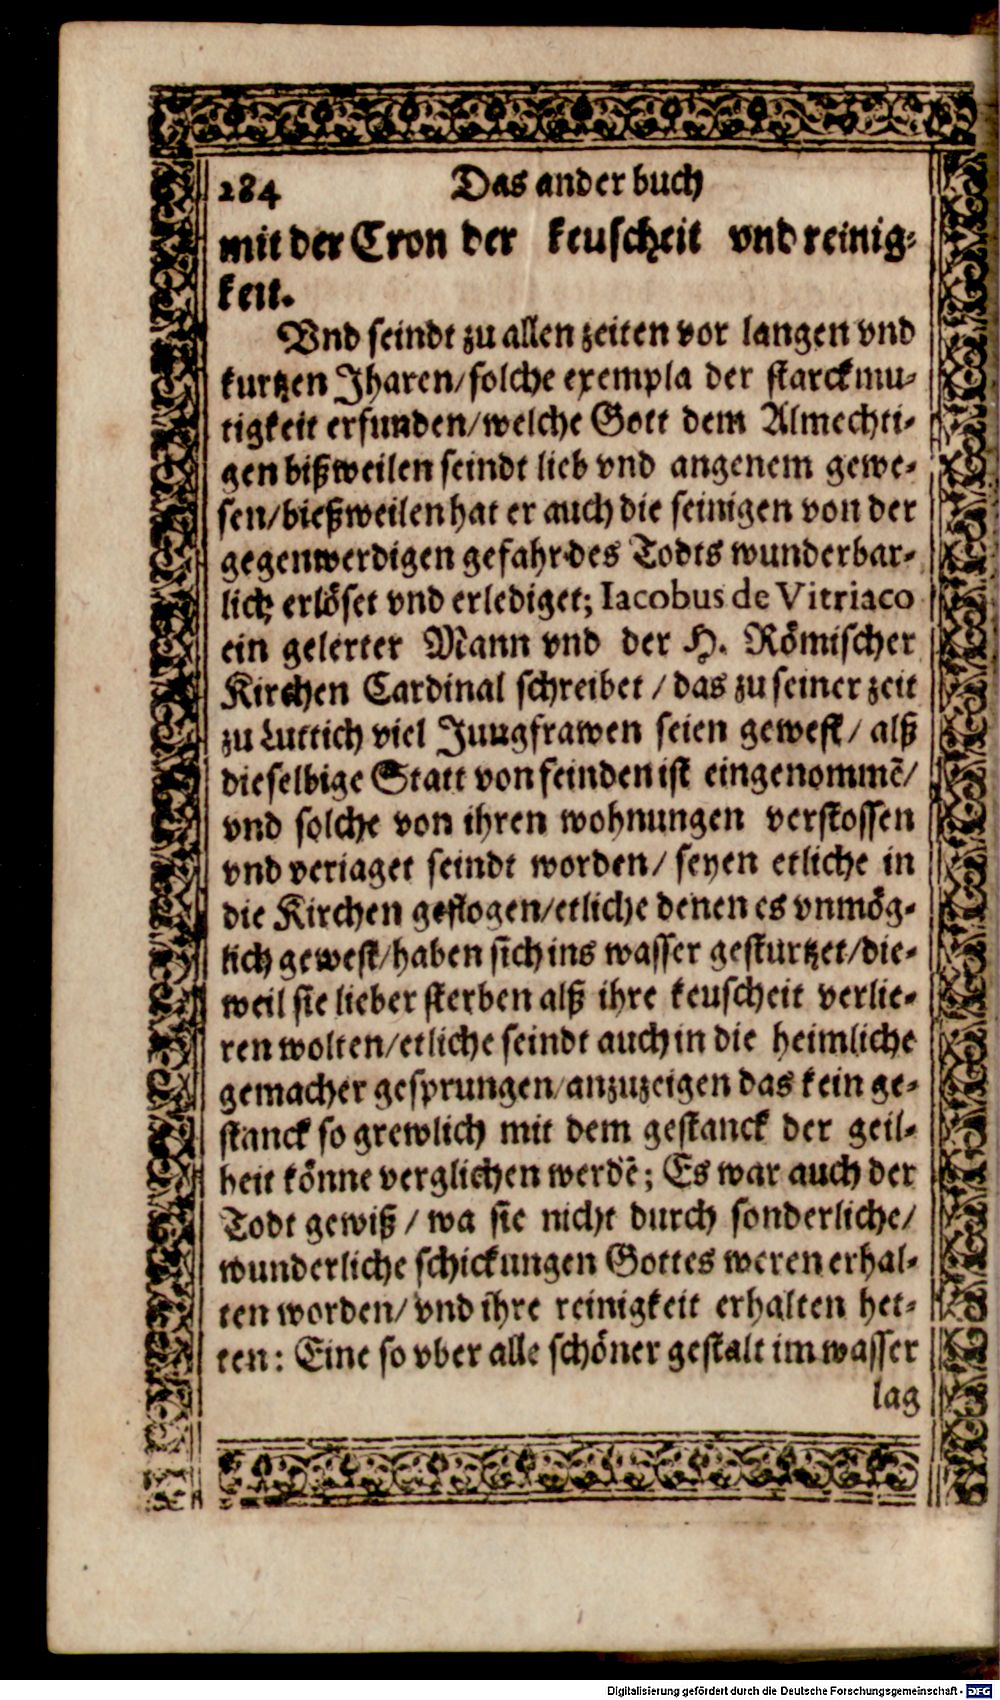 284 Das ander buch
mit der Cron der keuscheit vnd reinig-
keit.
Vnd seindt zu allen zeiten vor langen vnd
kurtzen Jharen/solche exempla der starckmu-
tigkeit erfunden/welche Gott dem Almechti-
gen bißweilen seindt lieb vnd angenem gewe-
sen/bießweilen hat er auch die seinigen von der
gegenwerdigen gefahr des Todts wunderbar-
lich erlöset vnd erlediget; Iacobus de Vitriaco
ein gelerter Mann vnd der H. Römischer
Kirchen Cardinal schreibet / das zu seiner zeit
zu Luttich viel Jungfrawen seien gewest/ alß
dieselbige Statt von feinden ist eingenommē/
vnd solche von ihren wohnungen verstossen
vnd veriaget seindt worden/ seyen etliche in
die Kirchen geflogen/etliche denen es vnmög-
lich gewest/haben sich ins wasser gesturtzet/die-
weil sie lieber sterben alß ihre keuscheit verlie-
ren wolten/etliche seindt auch in die heimliche
gemacher gesprungen/anzuzeigen das kein ge-
stanck so grewlich mit dem gestanck der geil-
heit könne verglichen werdē; Es war auch der
Todt gewiß / wa sie nicht durch sonderliche/
wunderliche schickungen Gottes weren erhal-
ten worden/ vnd ihre reinigkeit erhalten het-
ten: Eine so vber alle schöner gestalt im wasser
lag
Digitalisierung gefördert durch die Deutsche Forschungsgemeinschaft - DFG